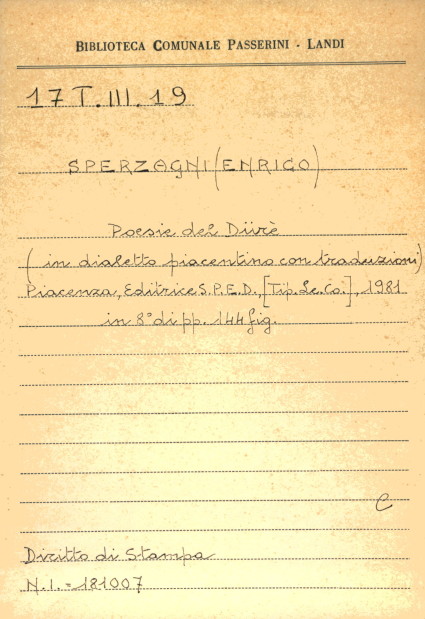 BIBLIOTECA COMUNALE PASSERINI - LANDI
17 T. III. 19
SPERZAGNI (ENRICO)
Poesie del Diirè
(in dialetto piacentino con traduzioni)
Piacenza, Editrice S.P.E.D., [Tip. Le. Co.], 1981
in 8° di pp. 144 fig.
C
Diritto di Stampa
N.I. = 181007